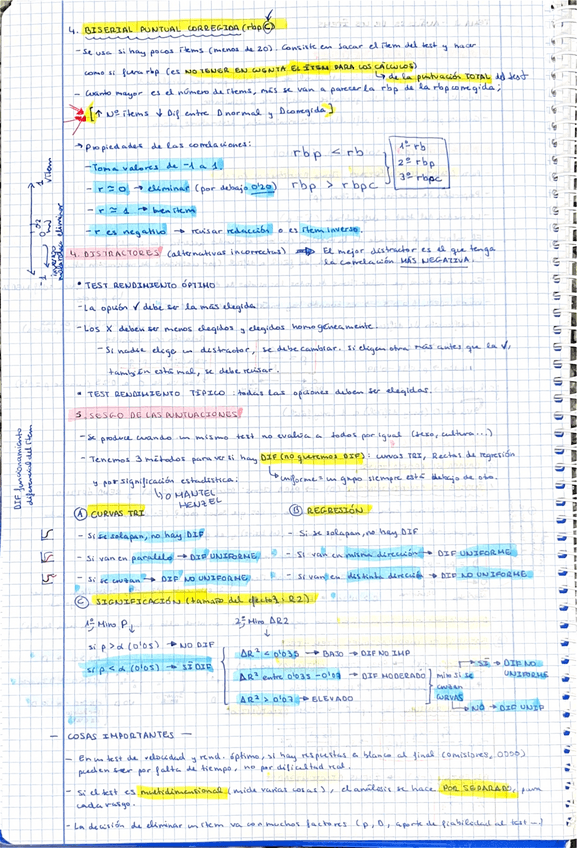 4. BISERIAL PUNTUAL CORREGIDA (rbp C)
- Se usa si hay pocos ítems (menos de 20). Consiste en sacar el ítem del test y hacer
como si fuera rbp (es NO TENER EN CUENTA EL ÍTEM PARA LOS CÁLCULOS)
↳ de la puntuación TOTAL del test
- Cuanto mayor es el número de ítems, más se van a parecer la rbp de la rbp corregida;
[↑ Nº ítems ↓ Dif entre D normal y D corregida]
→ Propiedades de las correlaciones:
- Toma valores de -1 a 1.
- r ≈ 0 → eliminar (por debajo 0'20)
- r ≈ 1 → buen ítem
- r es negativo → revisar redacción o es ítem inverso.
rbp < rb
rbp > rbpc
1º rb
2º rbp
3º rbpc
4. DISTRACTORES (alternativas incorrectas) ⇒ El mejor distractor es el que tenga
la correlación MÁS NEGATIVA.
• TEST RENDIMIENTO ÓPTIMO
- La opción ✓ debe ser la más elegida
- Los X deben ser menos elegidos y elegidos homogéneamente.
- Si nadie elige un distractor, se debe cambiar. Si eligen otra más antes que la ✓,
también está mal, se debe revisar.
• TEST RENDIMIENTO TÍPICO: todas las opciones deben ser elegidas.
5. SESGO DE LAS PUNTUACIONES
- Se produce cuando un mismo test no evalúa a todos por igual (sexo, cultura...)
- Tenemos 3 métodos para ver si hay DIF (no queremos DIF): curvas TRI, Rectas de regresión
y por significación estadística.
↳ uniforme = un grupo siempre está debajo de otro.
↳ MANTEL
HENZEL
DIF funcionamiento
diferencial del ítem
A CURVAS TRI
- Si se solapan, no hay DIF
- Si van en paralelo → DIF UNIFORME
- Si se cruzan → DIF NO UNIFORME
B REGRESIÓN
- Si se solapan, no hay DIF
- Si van en misma dirección → DIF UNIFORME
- Si van en distinta dirección → DIF NO UNIFORME
C SIGNIFICACIÓN (tamaño del efecto: R2)
1º Miro P
si p > α (0'05) → NO DIF
si p < α (0'05) → SÍ DIF
2º Miro ΔR2
ΔR² < 0'035 → BAJO → DIF NO IMP
ΔR² entre 0'035 - 0'07 → DIF MODERADO
ΔR² > 0'07 → ELEVADO
miro si se
cruzan
CURVAS
SÍ → DIF NO
UNIFORME
NO → DIF UNIF
— COSAS IMPORTANTES —
- En un test de velocidad y rend. óptimo, si hay respuestas a blanco al final (omisiones,
pueden ser por falta de tiempo, no por dificultad real.
- Si el test es multidimensional (mide varias cosas), el análisis se hace POR SEPARADO, para
cada rasgo.
- La decisión de eliminar un ítem va con muchos factores (p, D, aporte de fiabilidad al test...)